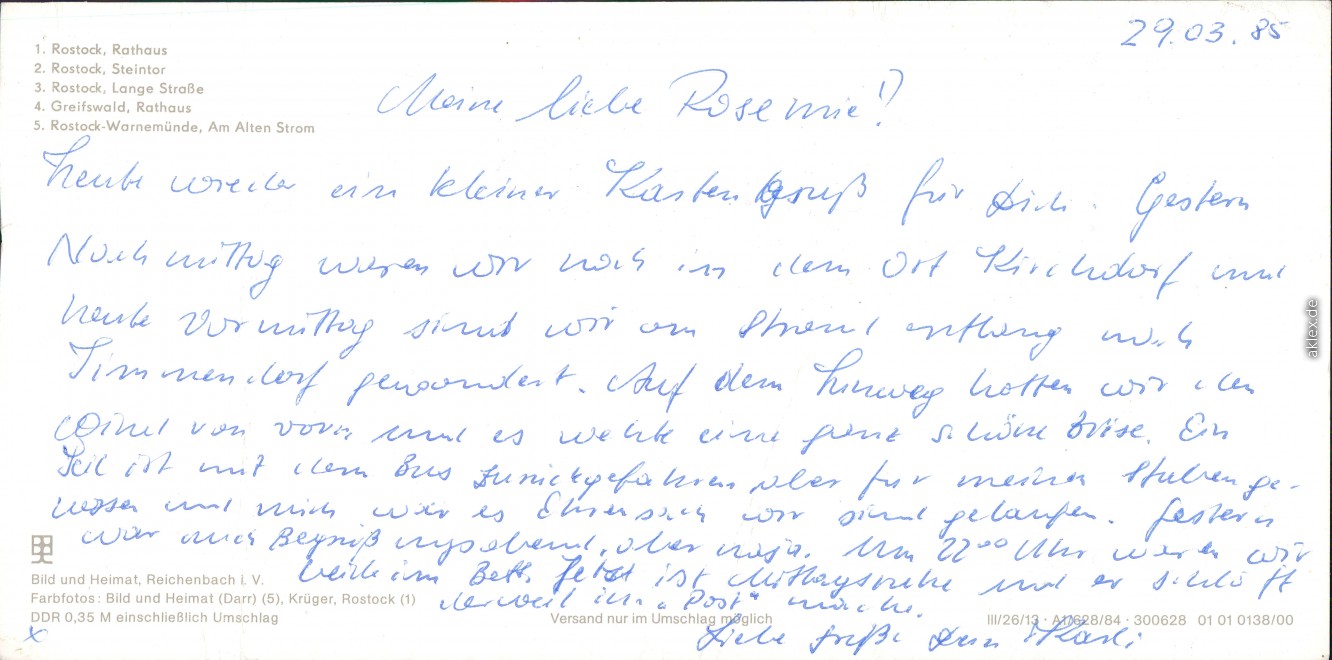 29.03.85
1. Rostock, Rathaus
2. Rostock, Steintor
3. Rostock, Lange Straße
4. Greifswald, Rathaus
5. Rostock-Warnemünde, Am Alten Strom
Meine liebe Rosemie!
Heute wieder ein kleiner Kartengruß für Dich. Gestern
Nachmittag waren wir noch in dem Ort Kirchdorf und
heute Vormittag sind wir am Strand entlang nach
Timmendorf gewandert. Auf dem Hinweg hatten wir den
Wind von vorn und es wehte eine ganz schöne Brise. Ein
Teil ist mit dem Bus zurückgefahren aber für meinen Stubenge-
nossen und mich war es Ehrensach wir sind gelaufen. Gestern
war auch Begrüßungsabend, aber naja. Um 22⁰⁰ Uhr waren wir
beide im Bett. Jetzt ist Mittagsruhe und er schläft
derweil ich "Post" mache.
Liebe Grüße Dein Karli
Bild und Heimat, Reichenbach i. V.
Farbfotos: Bild und Heimat (Darr) (5), Krüger, Rostock (1)
DDR 0,35 M einschließlich Umschlag
Versand nur im Umschlag möglich
III/26/13 · A1/628/84 · 300628 01 01 0138/00
x
aklex.de